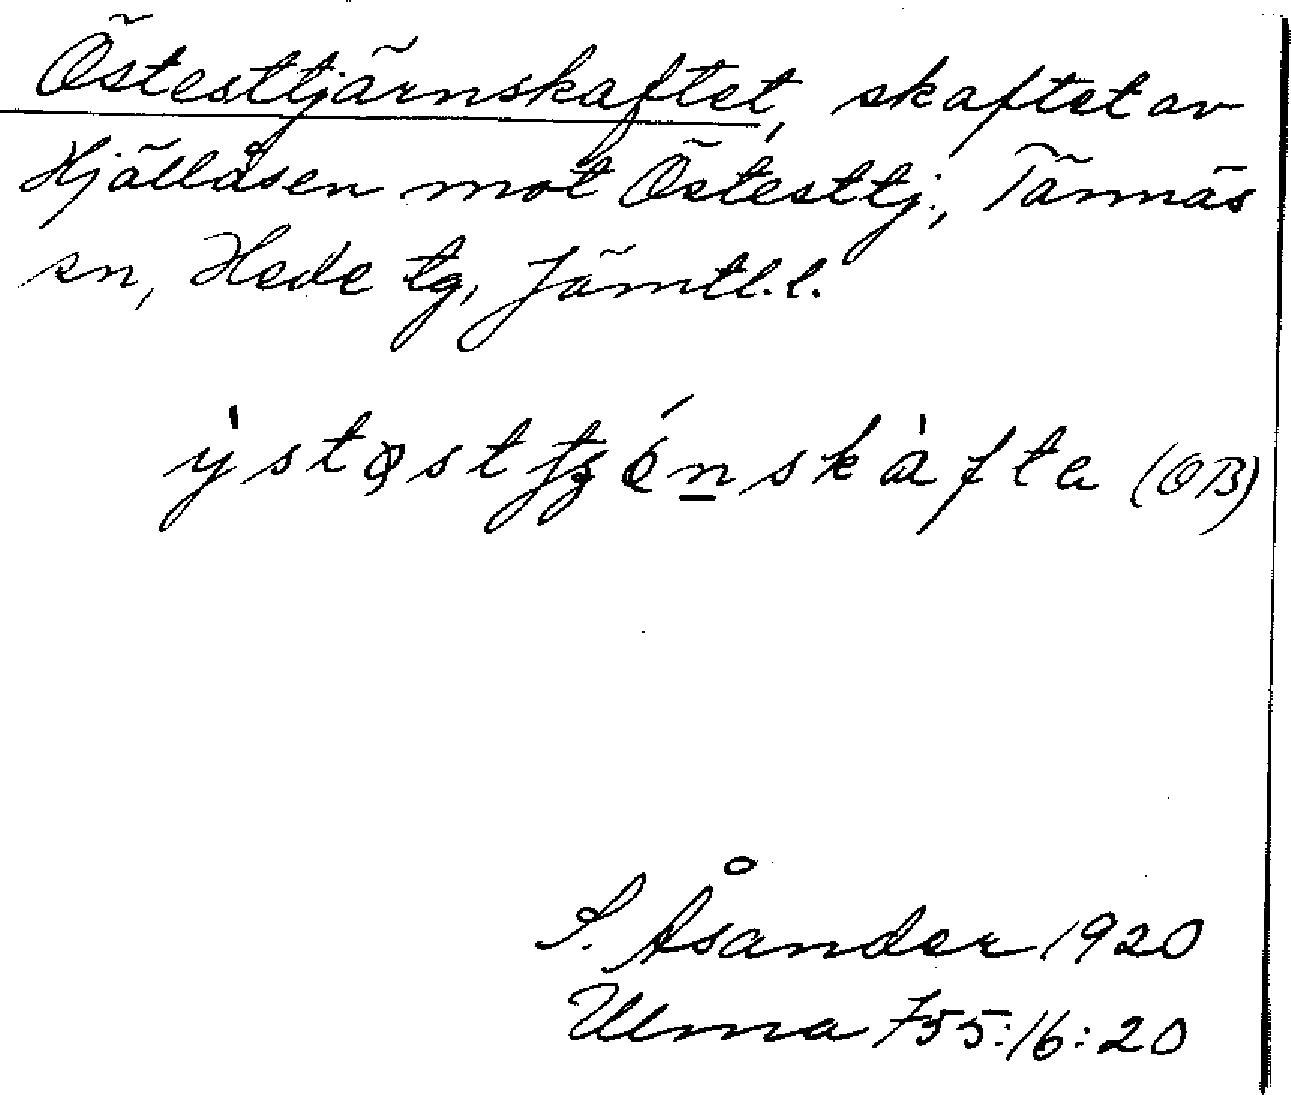 Östesttjärnskaftet, skaftet av
Hjällåsen mot Östesttj., Tännäs
sn, Hede tg, Jämtl.l.
(OB)
S. Åsander 1920
Ulma 755:16:20